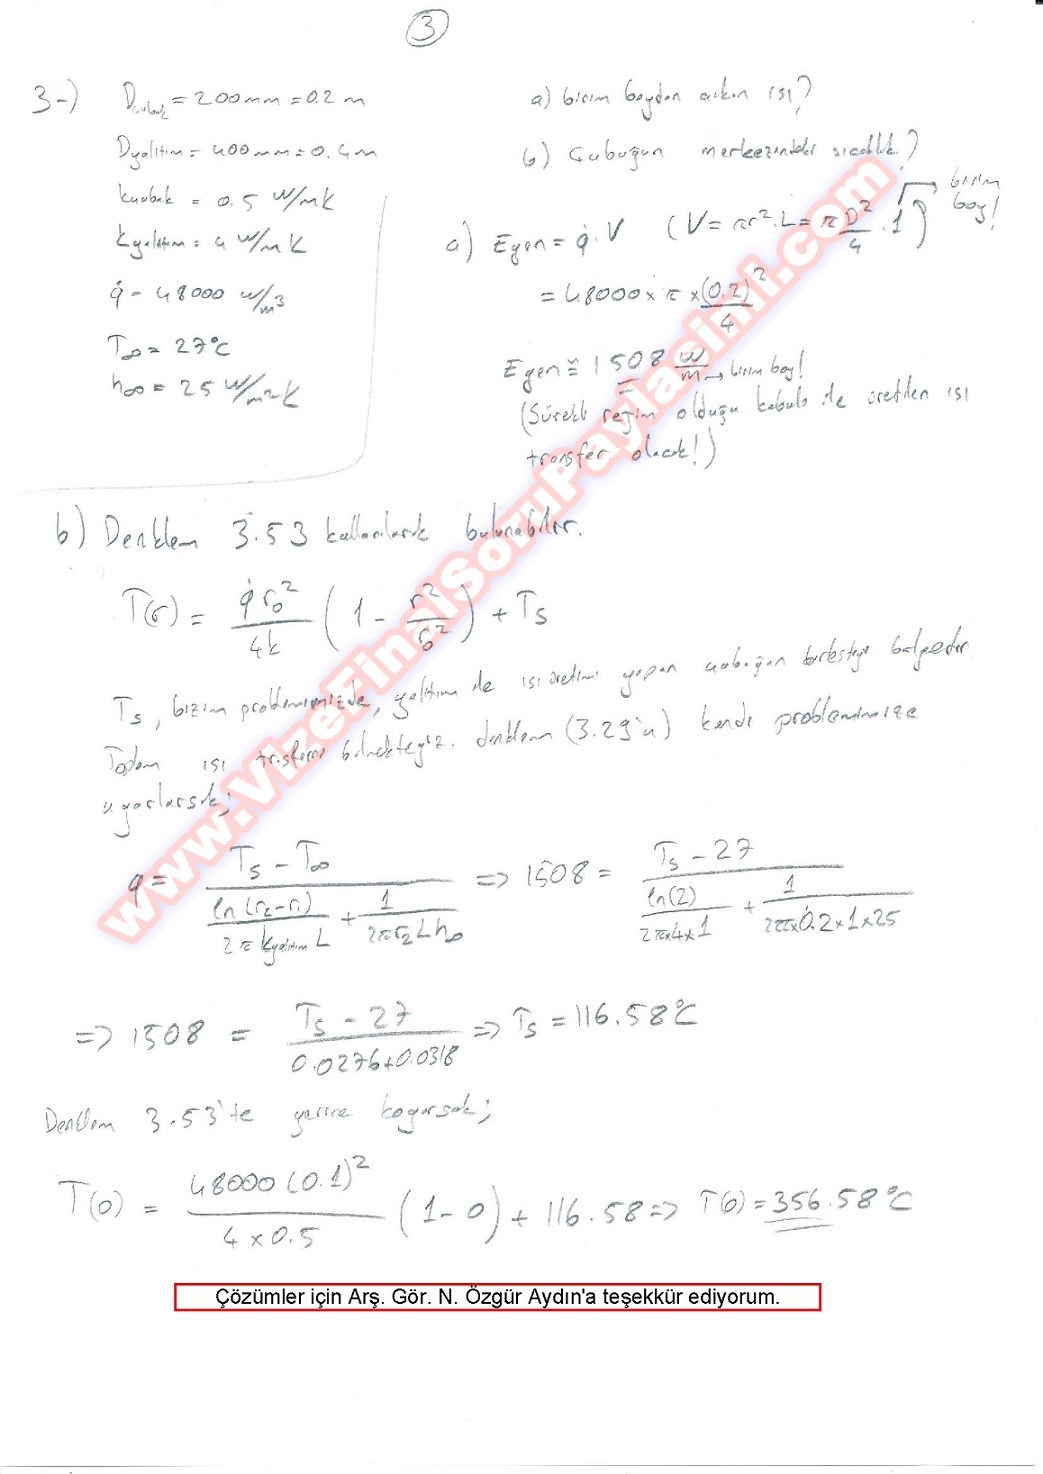 3
3-) Dçubuk = 200mm = 0.2 m
Dyalıtım = 400mm = 0.4m
kçubuk = 0.5 W/mK
kyalıtım = 4 W/mK
q̇ = 48000 W/m³
T∞ = 27°C
h∞ = 25 W/m²K
a) birim boydan çıkan ısı?
b) Çubuğun merkezindeki sıcaklık?
a) Egen = q̇.V (V = πr².L = π D²/4 . 1) → birim boy!
= 48000 x π x (0.2)²/4
Egen ≅ 1508 W/m → birim boy!
(Sürekli rejim olduğu kabulü ile üretilen ısı
transfer olacak!)
b) Denklem 3.53 kullanılarak bulunabilir.
T(r) = q̇ r₀²/4k (1 - r²/r₀²) + Ts
Ts, bizim problemimizde, yalıtım ile ısı üretimi yapan çubuğun birleştiği bölgedir.
Toplam ısı transferini bilmekteyiz. denklem (3.29'u) kendi problemimize
uyarlarsak;
q = (Ts - T∞) / (ln(r₂-r₁)/2πkyalıtım L + 1/2πr₂Lh∞) => 1508 = (Ts - 27) / (ln(2)/2πx4x1 + 1/2πx0.2x1x25)
=> 1508 = (Ts - 27) / (0.0276+0.0318) => Ts = 116.58°C
Denklem 3.53'te yerine koyarsak;
T(0) = 48000 (0.1)²/4x0.5 (1-0) + 116.58 => T(0) = 356.58°C
Çözümler için Arş. Gör. N. Özgür Aydın'a teşekkür ediyorum.
www.VizeFinalSoruPaylasimi.com